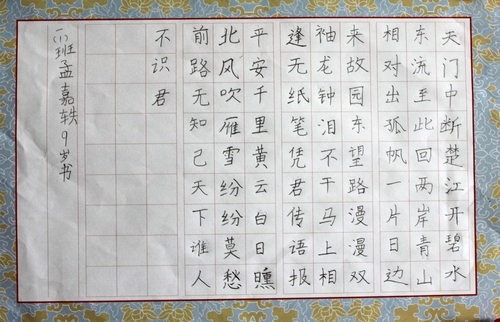 天门中断楚江开碧水
东流至此回两岸青山
相对出孤帆一片日边
来故园东望路漫漫双
袖龙钟泪不干马上相
逢无纸笔凭君传语报
平安千里黄云白日曛
北风吹雁雪纷纷莫愁
前路无知己天下谁人
不识君
班孟嘉轶9岁书